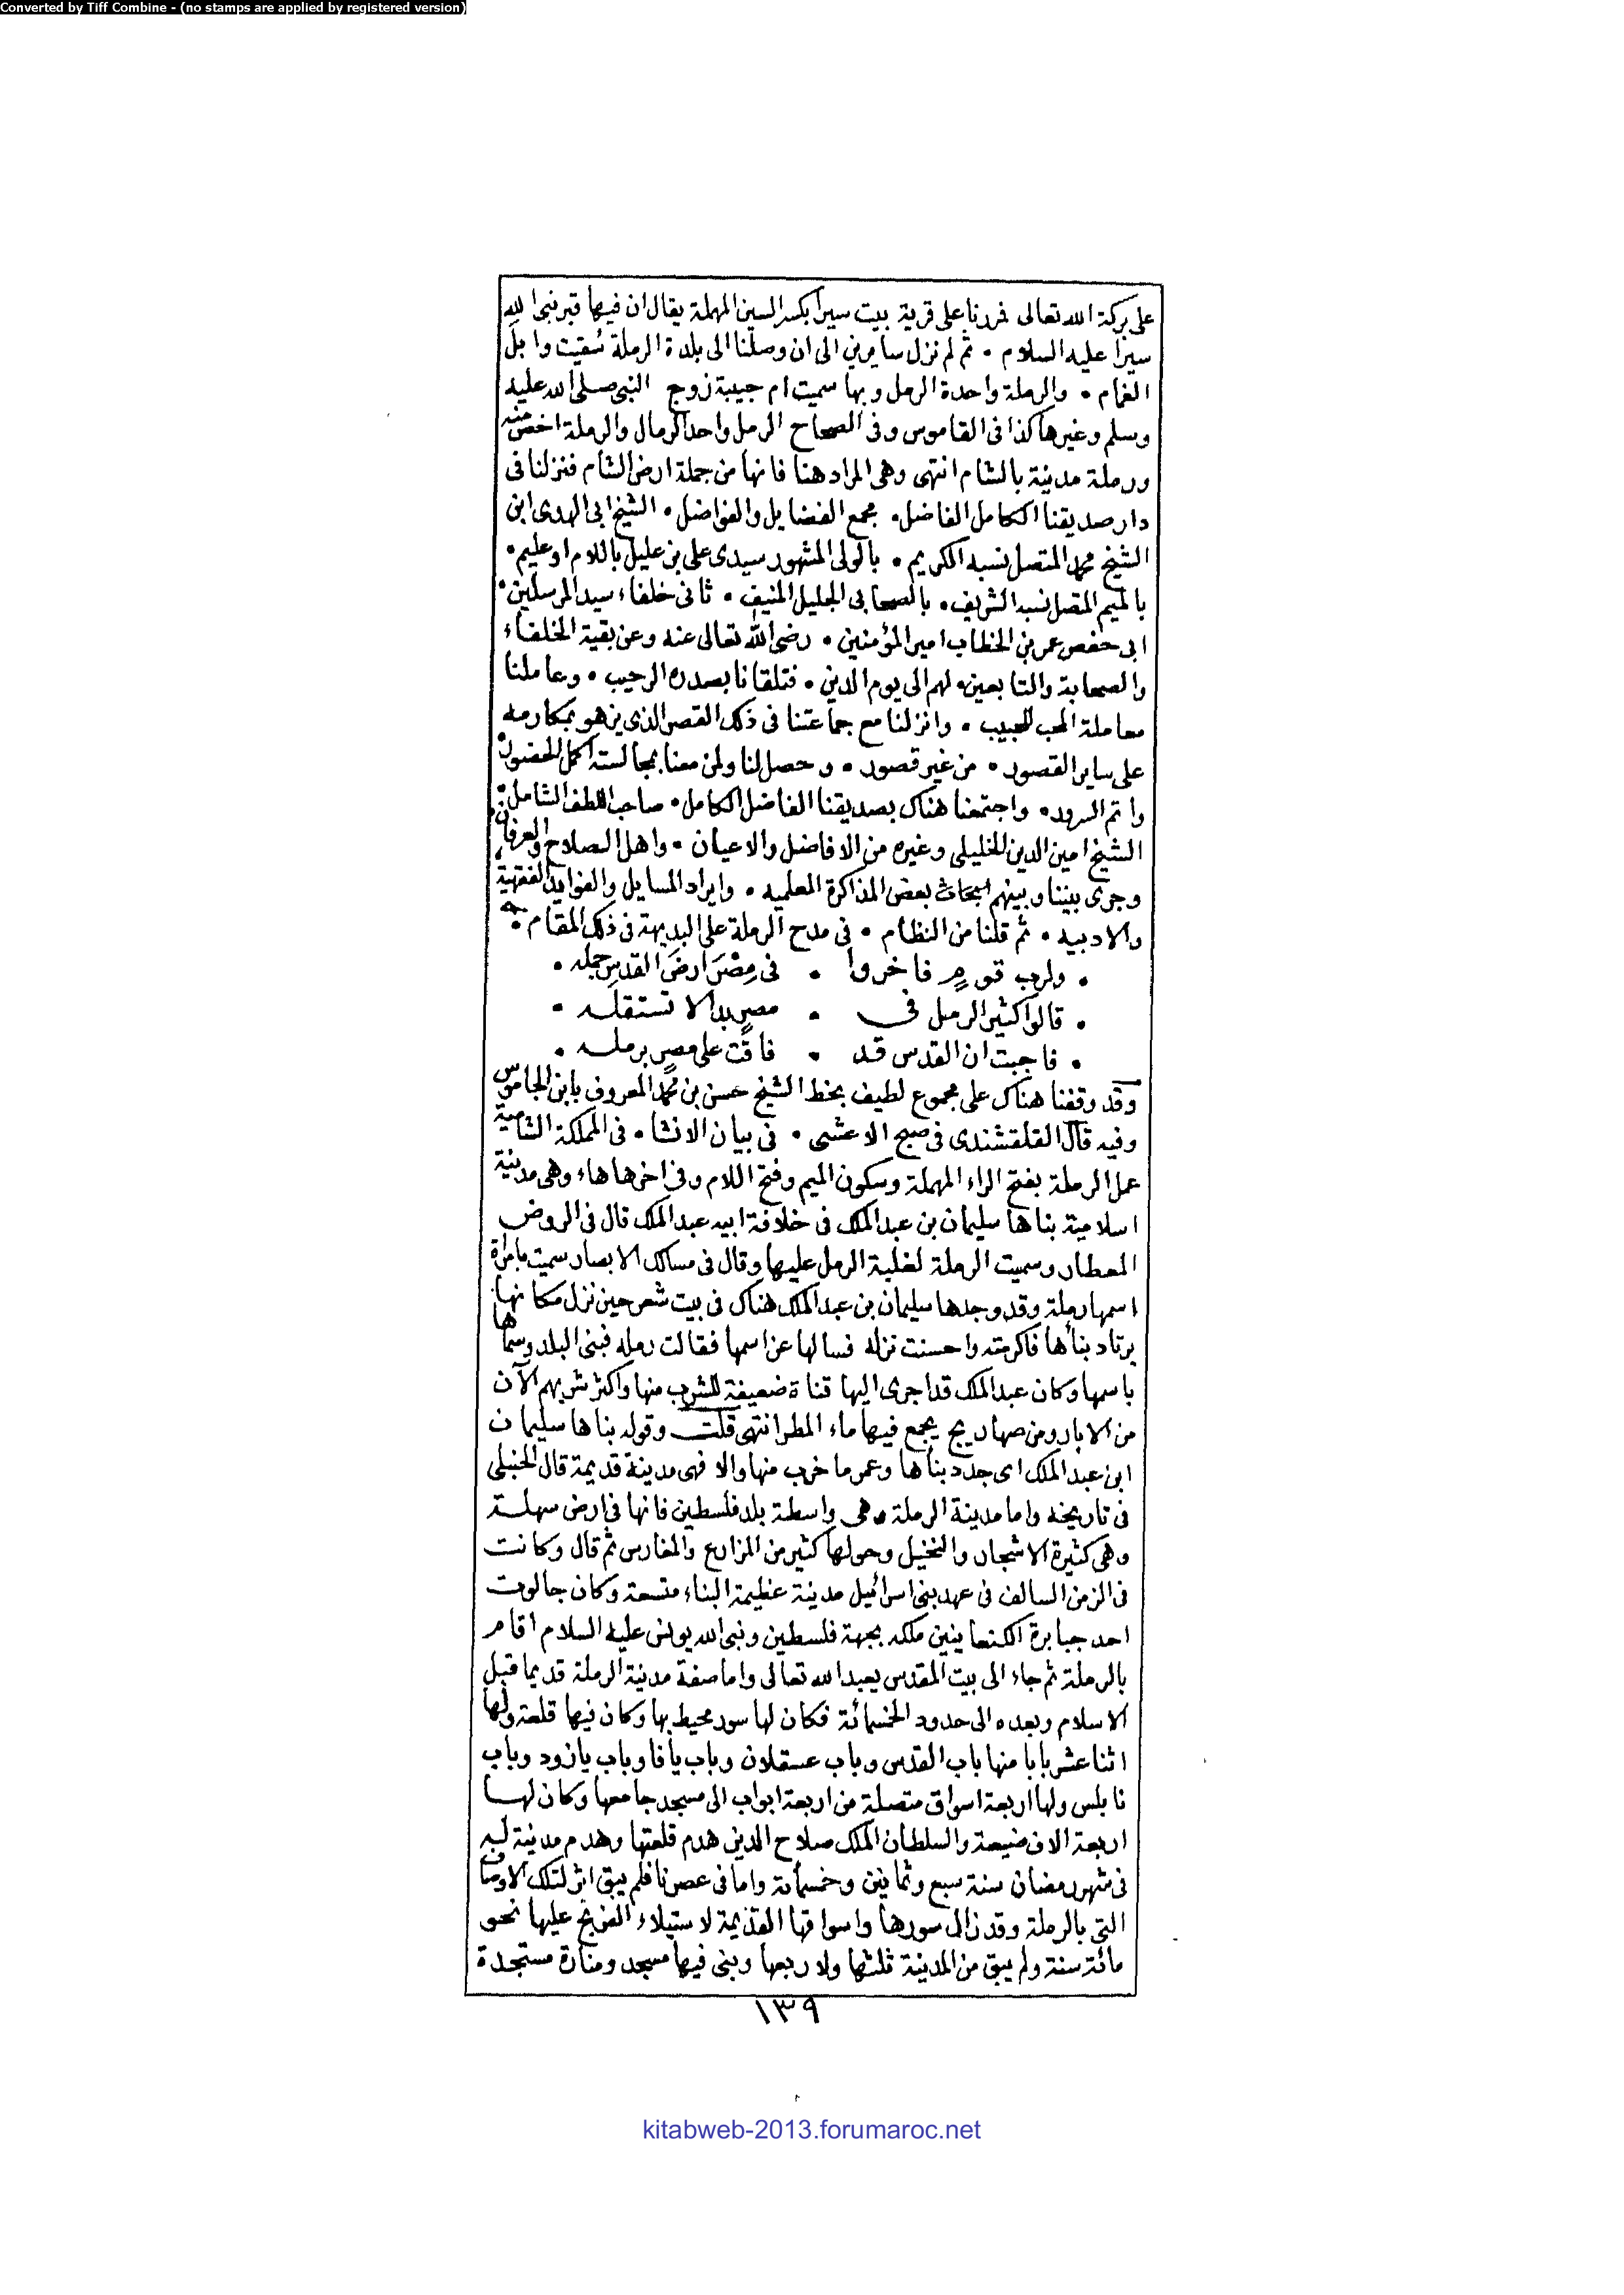 Converted by Tiff Combine - (no stamps are applied by registered version)
على بركة الله تعالى فمررنا على قرية بيت سيرا بكسر السين المهملة يقال ان فيها قبر نبى الله
سيرا عليه السلام • ثم لم نزل سايرين الى ان وصلنا الى بلدة الرملة سُقيت وابل
الغمام • والرملة واحدة الرمل وبها سميت ام حبيبة زوج النبى صلى الله عليه
وسلم وغيرها كذا فى القاموس وفى الصحاح الرمل واحد الرمال والرملة اخص منه
ورملة مدينة بالشام انتهى وهى المراد هنا فانها من جملة ارض الشام فنزلنا فى
دار صديقنا الكامل الفاضل • مجمع الفضايل والفواضل • الشيخ ابى الهدى ابن
الشيخ محمد المتصل نسبه الكريم • بالولى المشهور سيدى على بن عليل باللام او عليم •
بالميم المتصل نسبه الشريف • بالصحابى الجليل المنيف • ثانى خلفاء سيد المرسلين •
ابى حفص عمر بن الخطاب امير المؤمنين • رضى الله تعالى عنه وعن بقية الخلفاء
والصحابة والتابعين • لهم الى يوم الدين • فتلقانا بصدره الرحيب • وعاملنا
معاملة المحب للحبيب • وانزلنا مع جماعتنا فى ذلك القصر الذى يزهو بمكارمه
على ساير القصور • من غير قصور • وحصل لنا ولمن معنا بمجالسته اكمل الحضور
واتم السرور • واجتمعنا هناك بصديقنا الفاضل الكامل • صاحب اللطف الشامل •
الشيخ امين الدين الخليلى وغيره من الافاضل والاعيان • واهل الصلاح والعرفان
وجرى بيننا وبينهم ابحاث بعض المذاكرة العلميه • وايراد المسايل والفوايد الفقهية
والادبيه • ثم قلنا من النظام • فى مدح الرملة على البديهة فى ذلك المقام •
• ولرب قومٍ فاخروا • فى مِصْرَ ارضَ القدسِ جمله •
• قالوا كثير الرمل فى • مصرٍ بدا لا تستقله •
• فاجبت ان القدس قد • فاقت على مصرٍ برمله •
وقد وقفنا هناك على مجموع لطيف بخط الشيخ حسن بن محمد المعروف بابن الجاموس
وفيه قال القلقشندى فى صبح الاعشى • فى بيان الانشا • فى المملكة الشامية
عمل الرملة بفتح الراء المهملة وسكون الميم وفتح اللام وفى اخرها هاء وهى مدينة
اسلامية بناها سليمان بن عبد الملك فى خلافة ابيه عبد الملك قال فى الروض
المعطار وسميت الرملة لغلبة الرمل عليها وقال فى مسالك الابصار سميت بامراة
اسمها رملة وقد وجدها سليمان بن عبد الملك هناك فى بيت شعر حين نزل مكانها
يرتاد بناءها فاكرمته واحسنت نزله فسالها عن اسمها فقالت رمله فبنى البلد وسماها
باسمها وكان عبد الملك قد اجرى اليها قناة ضعيفة للشرب منها واكثر شربهم الآن
من الابار ومن صهاريج يجمع فيها ماء المطر انتهى قلت وقوله بناها سليمان
ابن عبد الملك اى جدد بناءها وعمر ما خرب منها والا فهى مدينة قديمة قال الحنبلى
فى تاريخه واما مدينة الرملة وهى واسطة بلد فلسطين فانها فى ارض سهلة
وهى كثيرة الاشجار والنخيل وحولها كثير من المزارع والمغارس ثم قال وكانت
فى الزمن السالف فى عهد بنى اسرائيل مدينة عظيمة البناء متسعة وكان جالوت
احد جبابرة الكنعانيين ملكه بجهة فلسطين ونبى الله يونس عليه السلام اقام
بالرملة ثم جاء الى بيت المقدس يعبد الله تعالى واما صفة مدينة الرملة قديما قبل
الاسلام وبعده الى حدود الخمسمائة فكان لها سور محيط بها وكان فيها قلعة ولها
اثنا عشر بابا منها باب القدس وباب عسقلان وباب يافا وباب يازور وباب
نابلس ولها اربعة اسواق متصلة من اربعة ابواب الى مسجد جامعها وكان لها
اربعة الاف ضيعة والسلطان الملك صلاح الدين هدم قلعتها وهدم مدينة لد
فى شهر رمضان سنة سبع وثمانين وخمسمائة واما فى عصرنا فلم يبق اثر لتلك الاوصاف
التى بالرملة وقد زال سورها واسواقها القديمة لاستيلاء الفرنج عليها نحو
مائة سنة ولم يبق من المدينة ثلثها ولا ربعها وبنى فيها مسجد ومنارة مستجدة
١٣٩
kitabweb-2013.forumaroc.net